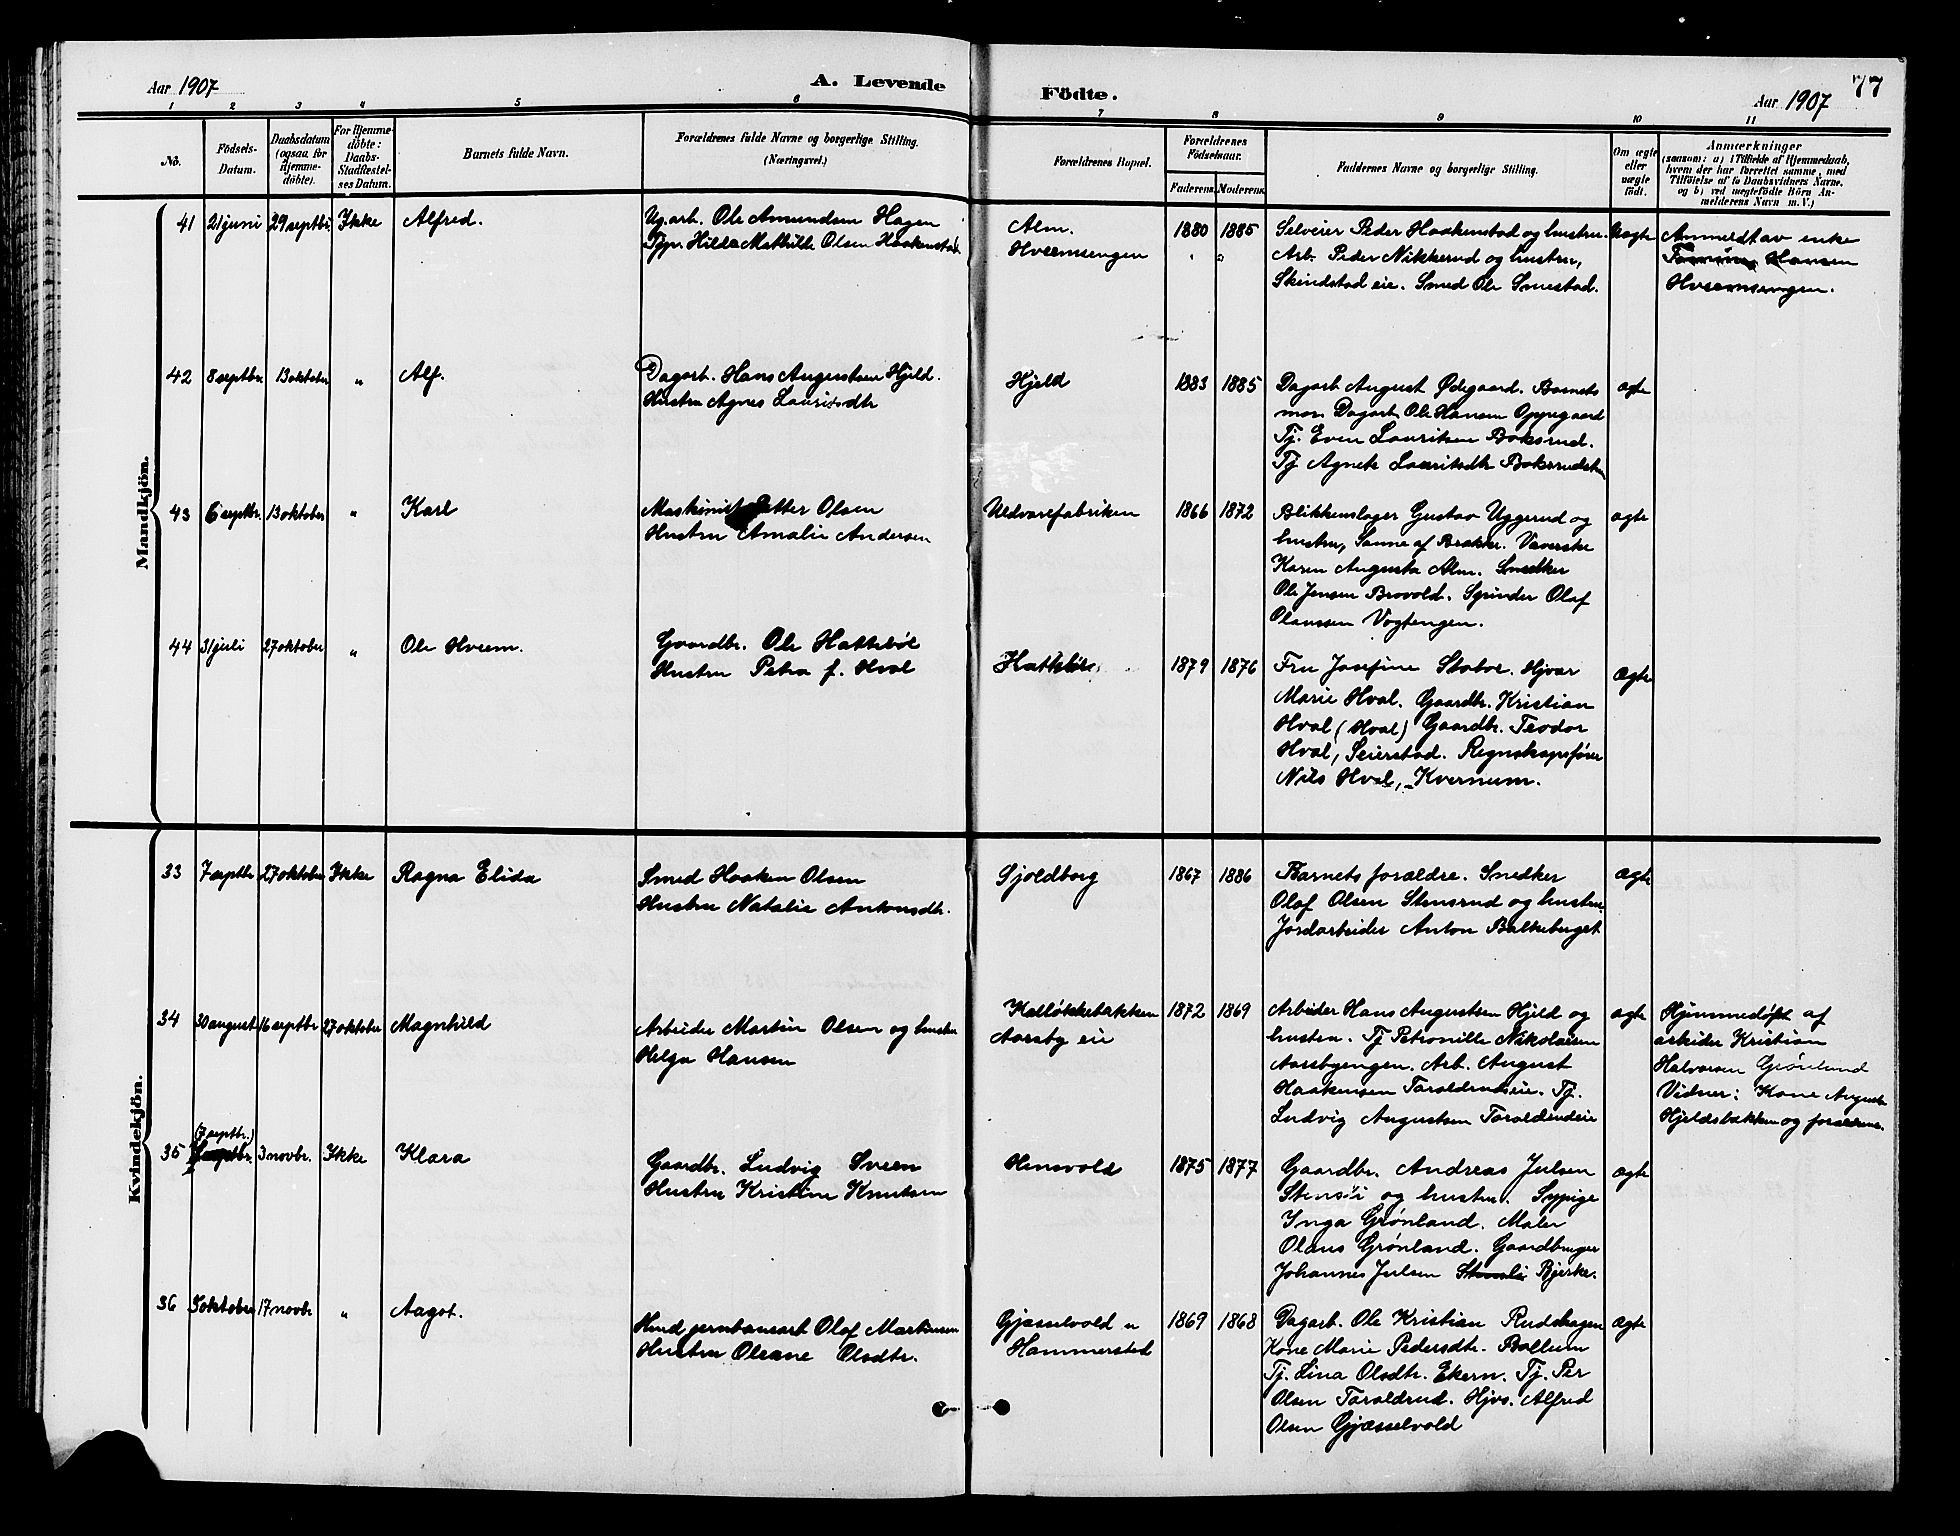 Aar 1907 A. Levende Födte. Aar 1907 77
1 2 3 4 5 6 7 8 9 10 11
No.
Födsels-Datum.
Daabsdatum (ogsaa for hjemmedöbte).
For Hjemmedöbte: Daabs-Stadfestelses Datum.
Barnets fulde Navn.
Forældrenes fulde Navne og borgerlige Stilling.
(Næringsvei.)
Forældrenes Bopæl.
Forældrenes Födselsaar.
Faderens. Moderens.
Faddernes Navne og borgerlige Stilling.
Om ægte eller uægte födt.
Anmærkninger
(saasom: a) i Tilfælde af Hjemmedaab,
hvem der har forrettet samme, med
Tilföielse af to Daabsvidners Navne,
og b) ved uægtefödte Börn Anmelderens Navn m. V.)
Mandkjön.
41 21 juni 29 septbr Ikke Alfred.
Ug.arb. Ole Amundsen Hagen
Tjp. Hilda Mathilde Olsen Haakenstad
Alm.
Hveemsengen
1880 1885
Selveier Peder Haakenstad og hustru.
Arb. Peder Nikkerud og hustru,
Skindstad eie. Smed Ole Smestad.
Uægte
Anmeldt av enke
Hansen
Hveemsengen.
42 8 septbr. 13 oktober " Alf.
Dagarb. Hans Augustsen Hjeld.
Hustru Agnes Lauritsdtr
Hjeld
1883 1885
Dagarb August Ødegaard. Barnets
mor. Dagarb. Ole Hansen Oppegaard
Tj. Even Lauritsen Boksrud.
Tj Agnete Lauritsdtr
ægte
43 6 septbr. 13 oktober " Karl
Maskinist Petter Olsen
Hustru Amalie Andersen
Uldvarefabriken
1866 1872
Blikkenslager Gustav Uggerud og
hustru, Sanne af Brække. Væverske
Karen Augusta Alm. Snedker
Ole Jensen Brovold. Spinder Olaf
Olaussen Vogtengen.
ægte
44 31 juli 27 oktober " Ole Hveem.
Gaardbr. Ole Hattebøl
Hustru Petra f. Hval
Hattebøl
1879 1876
Fru Josefine Stabo. Hjvær
Marie Hval. Gaardbr. Kristian
Hval (Hval) Gaardbr. Teodor
Hval, Seierstad. Regnskapsfører
Nils Hval, Kvernum.
Ægte
Kvindekjön.
33 7 septbr 27 oktober Ikke Ragna Elida
Smed Haaken Olsen
Hustru Natalie Antonsdtr.
Sjoldborg
1867 1886
Barnets forældre. Snedker
Olaf Olsen Stensrud og hustru.
Jordarbeider Anton Balkeberget
Ægte
34 30 august 16 septbr 27 oktober Magnhild
Arbeider Martin Olsen og hustru
Helga Hansen
Kalløkkebakken
Aarsby eie
1872 1869
Arbeider Hans Augustsen Hjeld og
hustru. Tj Petronille Nikolaisen
Aarsbyengen. Arb. August
Haakensen Taraldrudeie. Tj.
Ludvig Augustsen Taraldrudeie
ægte
Hjemmedøpt af
arbeider Kristian
Halvorsen Grønlund
Vidner: Kone Auguste
Hjeldsbakken og forældrene.
(7 septbr.)
35 3 novbr. Ikke Klara
Gaardbr. Ludvig Sveen
Hustru Kristine Knutsen
Hensvold
1875 1877
Gaardbr. Andreas Julsen
Stensli og hustru. Sypige
Inga Grønland. Maler
Olaus Grønland. Gaardbruger
Johannes Julsen Stensli Bjerke.
ægte
36 3 oktober 17 novbr " Aagot.
Hmd jernbanearb Olaf Martinsen
Hustru Oleane Olsdtr.
Gjøsselvold u
Hammerstad
1869 1868
Dagarb. Ole Kristian Rudshagen
Kone Marie Pedersdtr. Bolleum
Tj. Lina Olsdtr. Ekern. Tj. Per
Olsen Taraldrud. Hjvs. Alfred
Olsen Gjøsselvold
Ægte